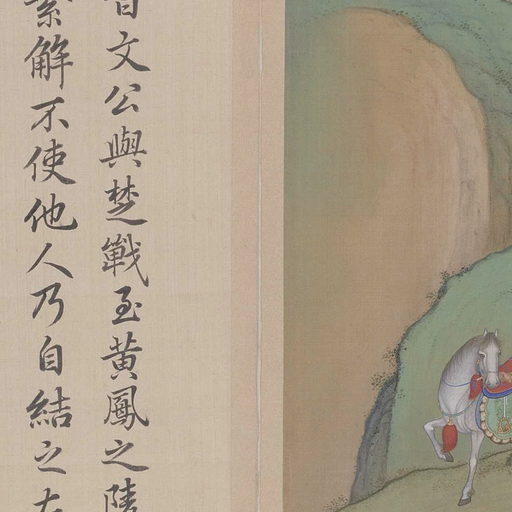 晉文公與楚戰至黃鳳之陵
係解不使他人乃自結之左